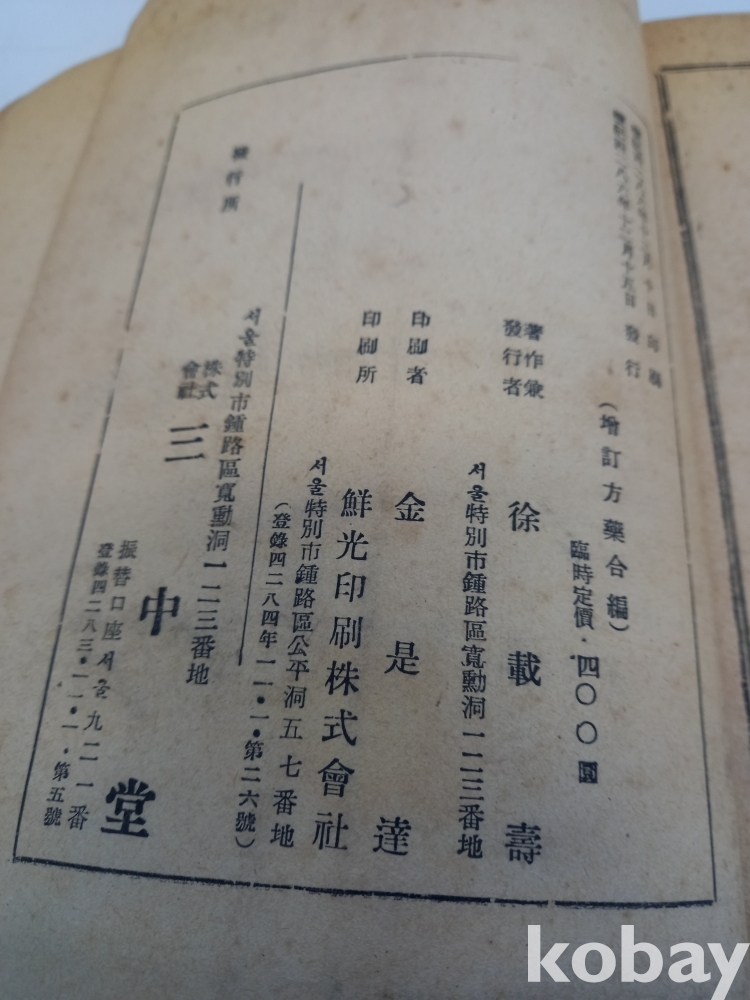 檀紀四二八六年十二月十日 印刷
檀紀四二八六年十二月十五日 發行
(增訂方藥合編)
臨時定價・四〇〇圜
著作兼
發行者
徐載壽
서울特別市鍾路區寬勳洞一二三番地
印刷者
金是達
印刷所
鮮光印刷株式會社
서울特別市鍾路區公平洞五七番地
(登錄四二八四年一一・一・第二六號)
發行所
서울特別市鍾路區寬勳洞一二三番地
株式
會社
三中堂
振替口座서울九二一番
登錄四二八三・一一・一・第五號
kobay